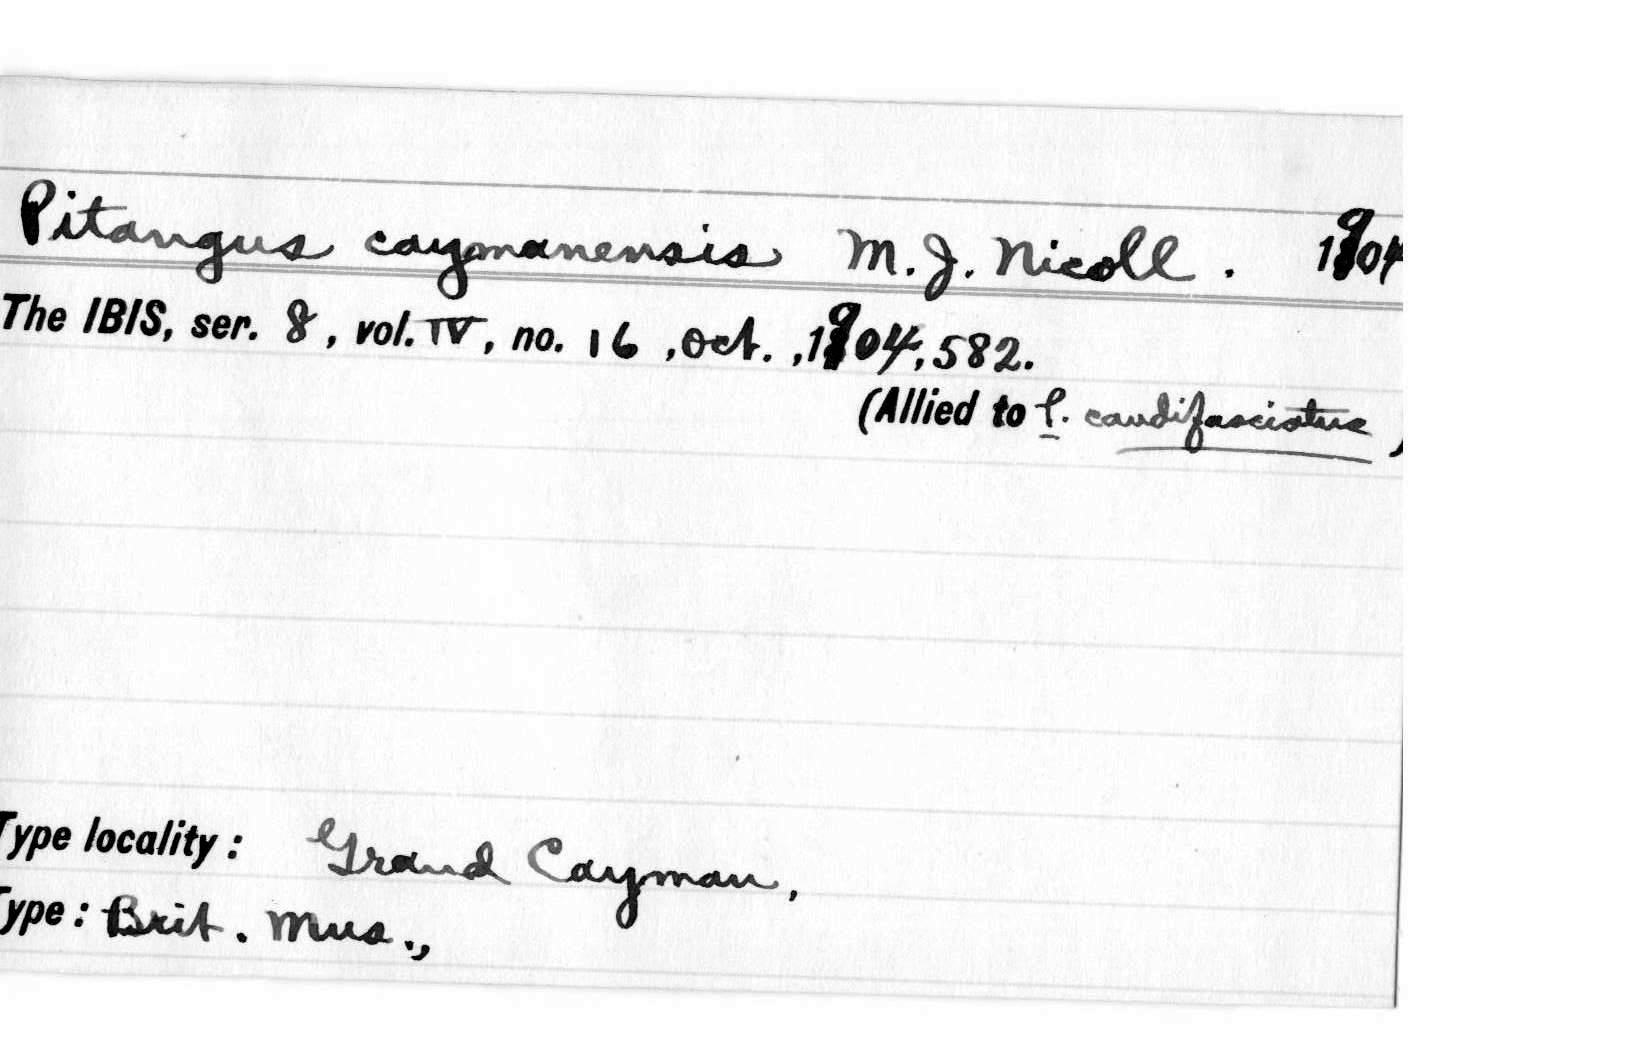 Pitangus caymanensis M. J. Nicoll. 1904
The IBIS, ser. 8, vol. IV, no. 16, Oct., 1904, 582.
(Allied to P. caudifasciatus)
Type locality: Grand Cayman,
Type: Brit. Mus.,